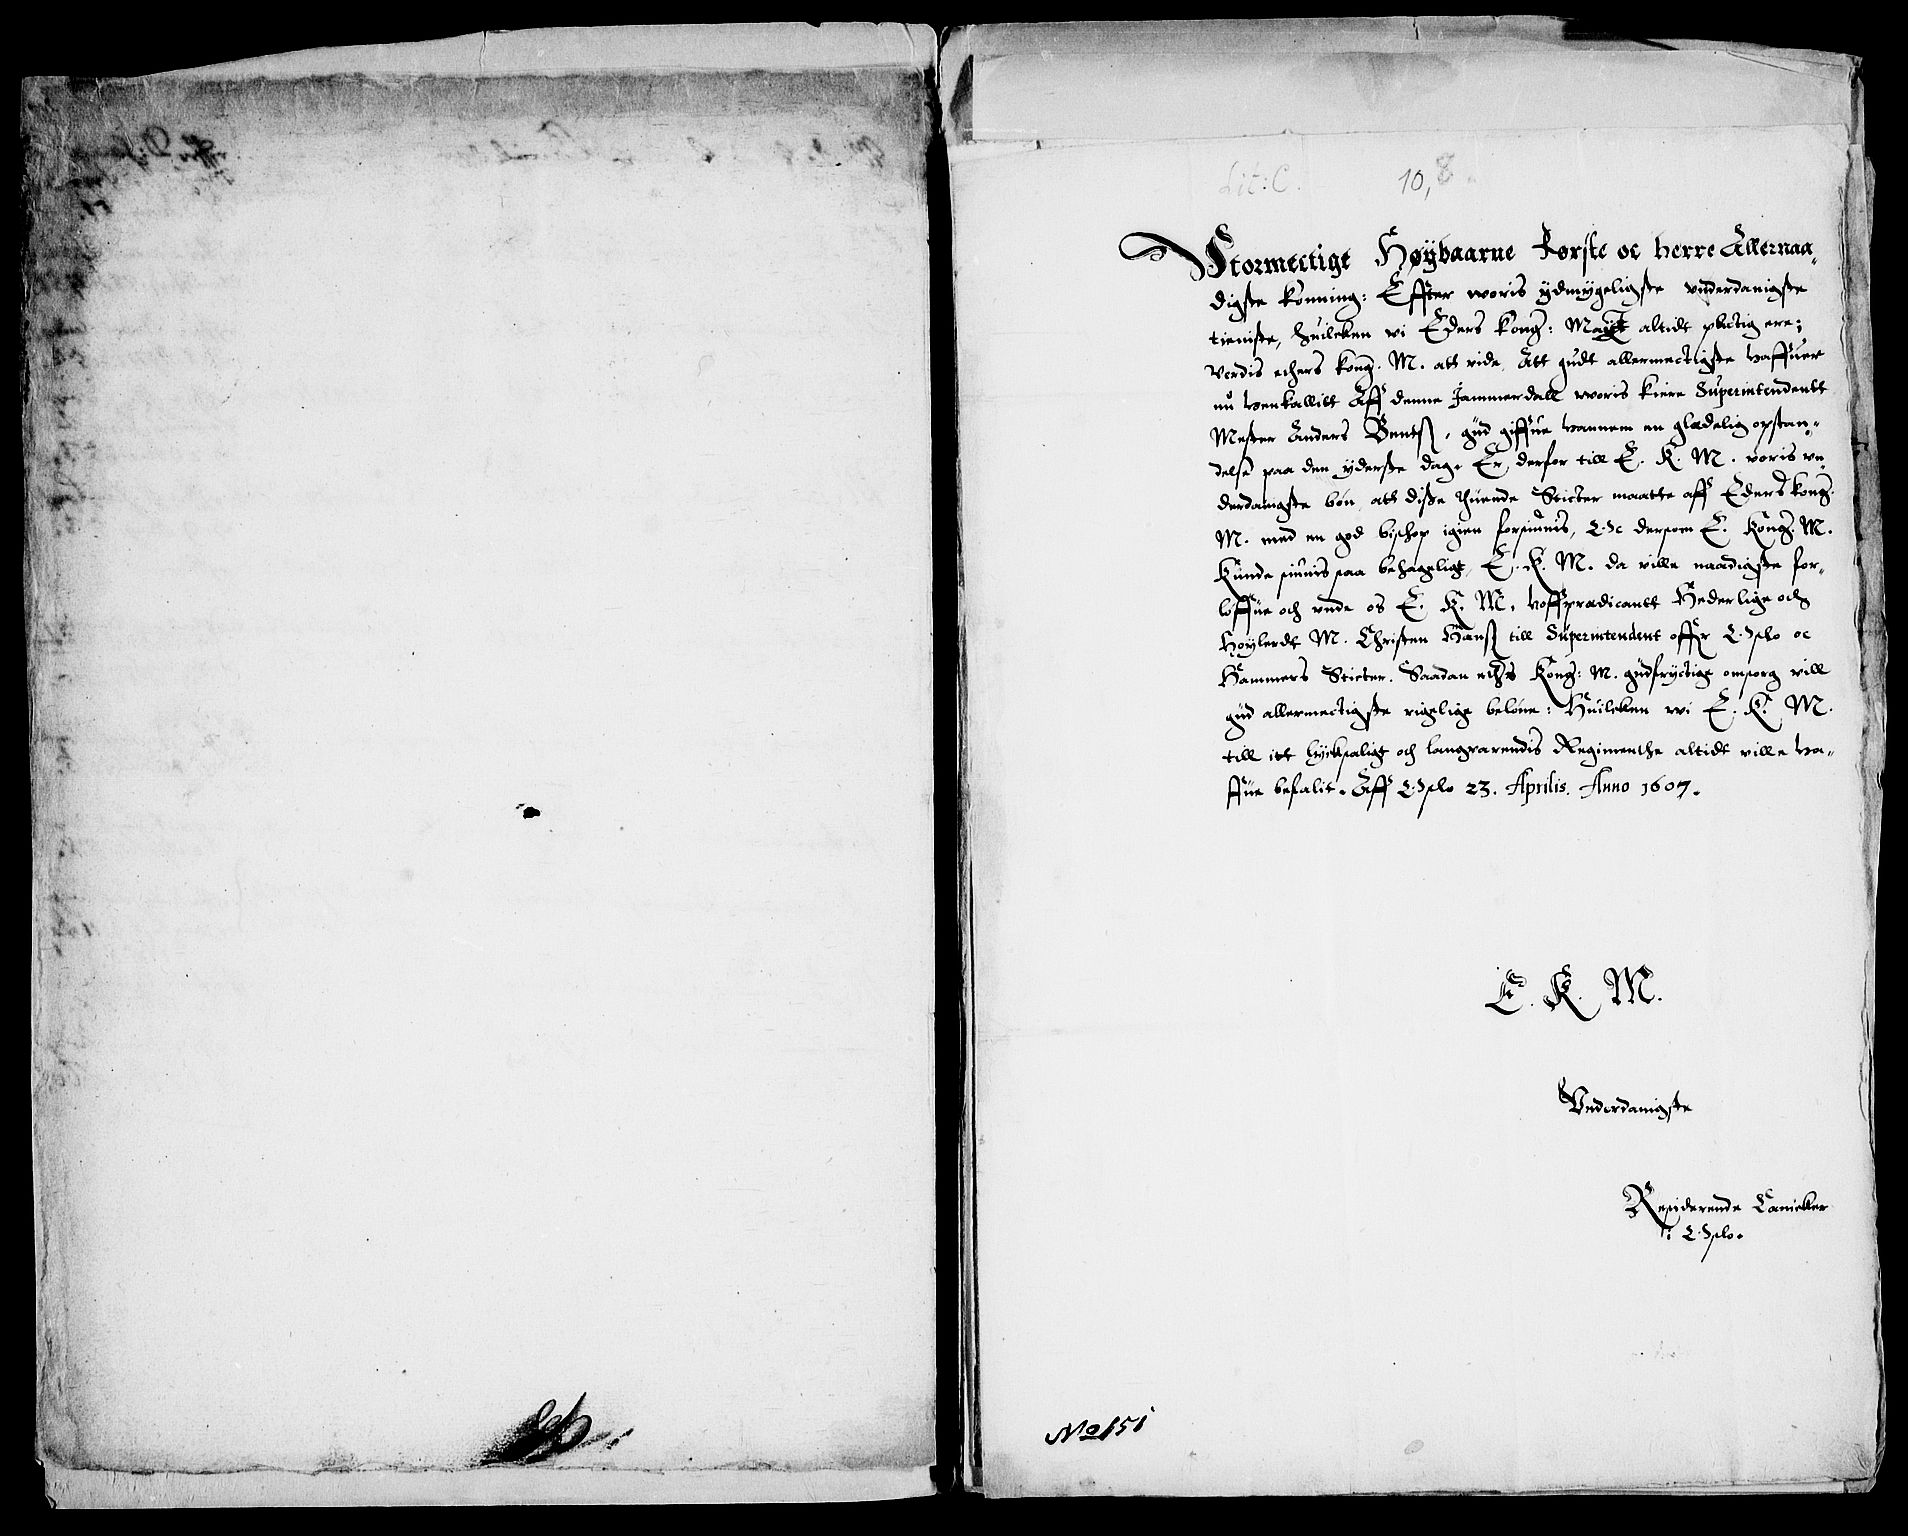 Lit: C. 10, 8
Stormectige Høÿbaarne Første oc herre Allernaa„
digste konning: Effter woris ydmygeligste vnderdanigste
tieniste, huilcken wi Eders kong: Maytt altidt plictig ere;
Verdis ethers kong. M. att vide, Att gudt allermectigste haffuer
nu henkallitt Aff denne Jammerdall woris kiere Superintendentt
Mester Anders Bentsß, gud giffue hannem en glædelig opstan„
delse paa den yderste dag. Er derfor till E. K. M. voris vn„
derdanigste bøn, att disße thuende Sticter maatte aff Eders kong.
M. med en god bischop igien forsiunis, Oc dersom E. Kong. M.
Kunde siunis saa behageligt, E. K. M. da ville naadigste for„
löffue och vnde os E. K. M. hoffprædicantt Hederlige och
Høylerdt M. Christen Hansß till Superintendent offr Opslo oc
Hammers Sticter. Saadan ethrs Kong: M. gudfryctige omsorg vill
gud allermectigste rigelige beløne: Huilcken wi E. K. M.
till itt lycksaligt och langvarendis Regimenthe altidt ville ha„
ffue befalit. Aff Opslo 23. Aprilis. Anno 1607.
E. K. M.
Vnderdanigste
Residerende Canicker
i Opslo.
No 151